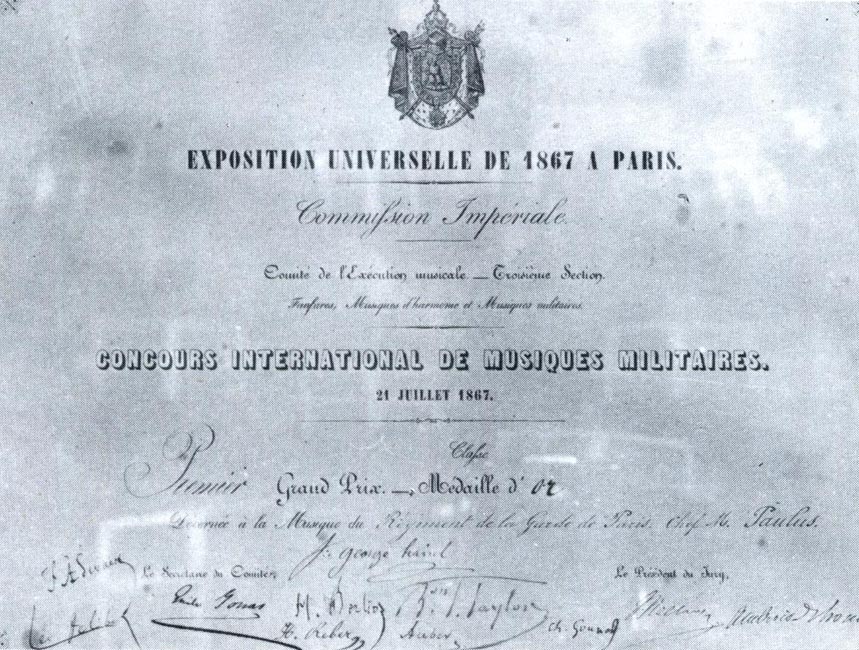 EXPOSITION UNIVERSELLE DE 1867 A PARIS.
Commission Impériale.
Comité de l'Exécution musicale. — Troisième Section.
Fanfares, Musiques d'harmonie et Musiques militaires.
CONCOURS INTERNATIONAL DE MUSIQUES MILITAIRES.
21 JUILLET 1867.
Classe
Premier Grand Prix. — Médaille d' or
Décernée à la Musique du Régiment de la Garde de Paris. Chef M. Paulus.
george hainl
Le Secrétaire du Comité, Le Président du Jury,
Emile Jonas H. Berlioz Bon J. Taylor
H. Reber Auber Ch. Gounod